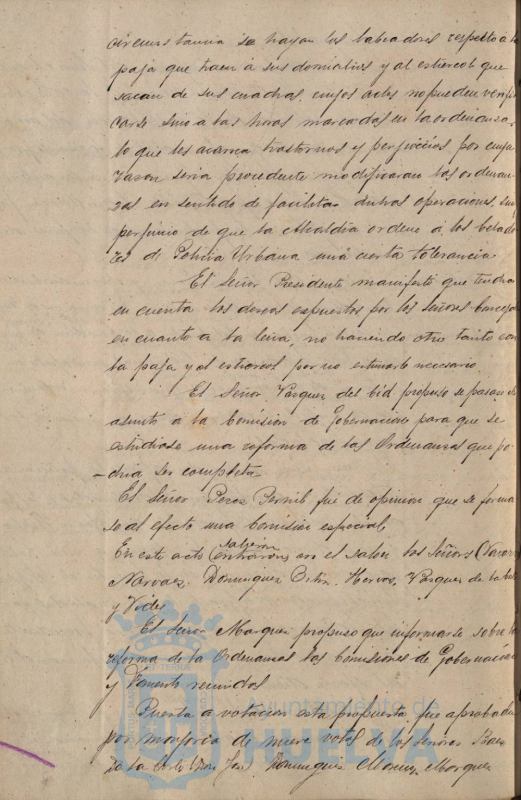 circunstancia se hayan los labradores respecto a la
paja que traen á sus domicilios y al estiercol que
sacan de sus cuadras, cuyos actos no pueden verifi
carse sino a las horas marcadas en la ordenanza
lo que les acarrea trastornos y perjuicios por cuya
razon seria procedente modificaran las ordenan
zas en sentido de facilitar dichas operaciones, sin
perjuicio de que la Alcaldia ordene á los celado
res de Policia Urbana una cierta tolerancia
El Señor Presidente manifestó que tendra
en cuenta los deseos expuestos por los Señores Concejales
en cuanto a la leña, no haciendo otro tanto con
la paja y el estiercol por no estimarlo necesario.
El Señor Vazquez del Cid propuso se pasara el
asunto a la Comision de Gobernacion para que se
estudiase una reforma de las Ordenanzas que po-
dria ser completa
El Señor Perez Bernil fué de opinion que se forma
se al efecto una Comision especial
En este acto salieron entraron en el salon los Señores
Narvaez, Dominguez Ortiz, Hervas, Vazquez de la
y Vides
El Señor Marquez propuso que informase sobre la
reforma de la Ordenanzas las Comisiones de Gobernacion
y Fomento reunidas
Puesta a votacion esta propuesta fué aprobada
por mayoria de nueve votos de los Señores
De la Corte Don José Dominguez Marquez
Ayuntamiento de
HUELVA